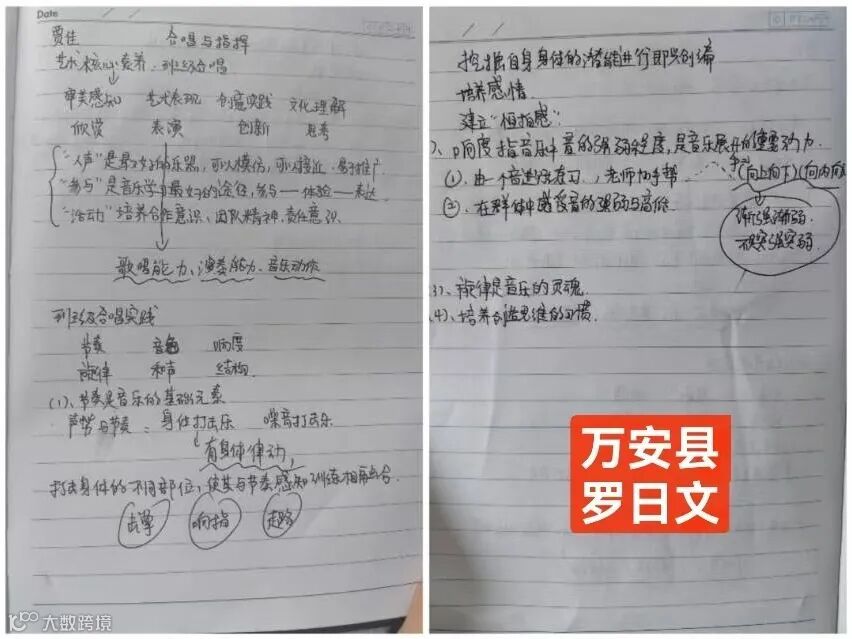 Date
贾佳 合唱与指挥
艺术核心素养·班级合唱
审美感知 艺术表现 创意实践 文化理解
欣赏 表演 创新 思考
"人声"是最好的乐器,可以模仿,可以接近,易于推广
"参与"是音乐学习最好的途径,参与——体验——表达
"活动"培养合作意识、团队精神、责任意识
歌唱能力、演奏能力、音乐动作
班级合唱实践
节奏 音色 响度
旋律 和声 结构
(1)、节奏是音乐的基础元素
声势与节奏: 身体打击乐 噪音打击乐
有身体律动,
打击身体的不同部位,使其与节奏感知训练相融合.
击掌 响指 走路
挖掘自身身体的潜能进行即兴创编
培养感情
建立"恒拍感"
响度指音乐中音的强弱程度,是音乐展开的重要动力.
①. 由一个音进行练习,老师加手势 (向上向下)(向内向
②. 在群体中感受音的强弱与高低
渐强渐弱
突强突弱
(3)、旋律是音乐的灵魂
(4)、培养创造思维的习惯
万安县
罗日文
大数跨境